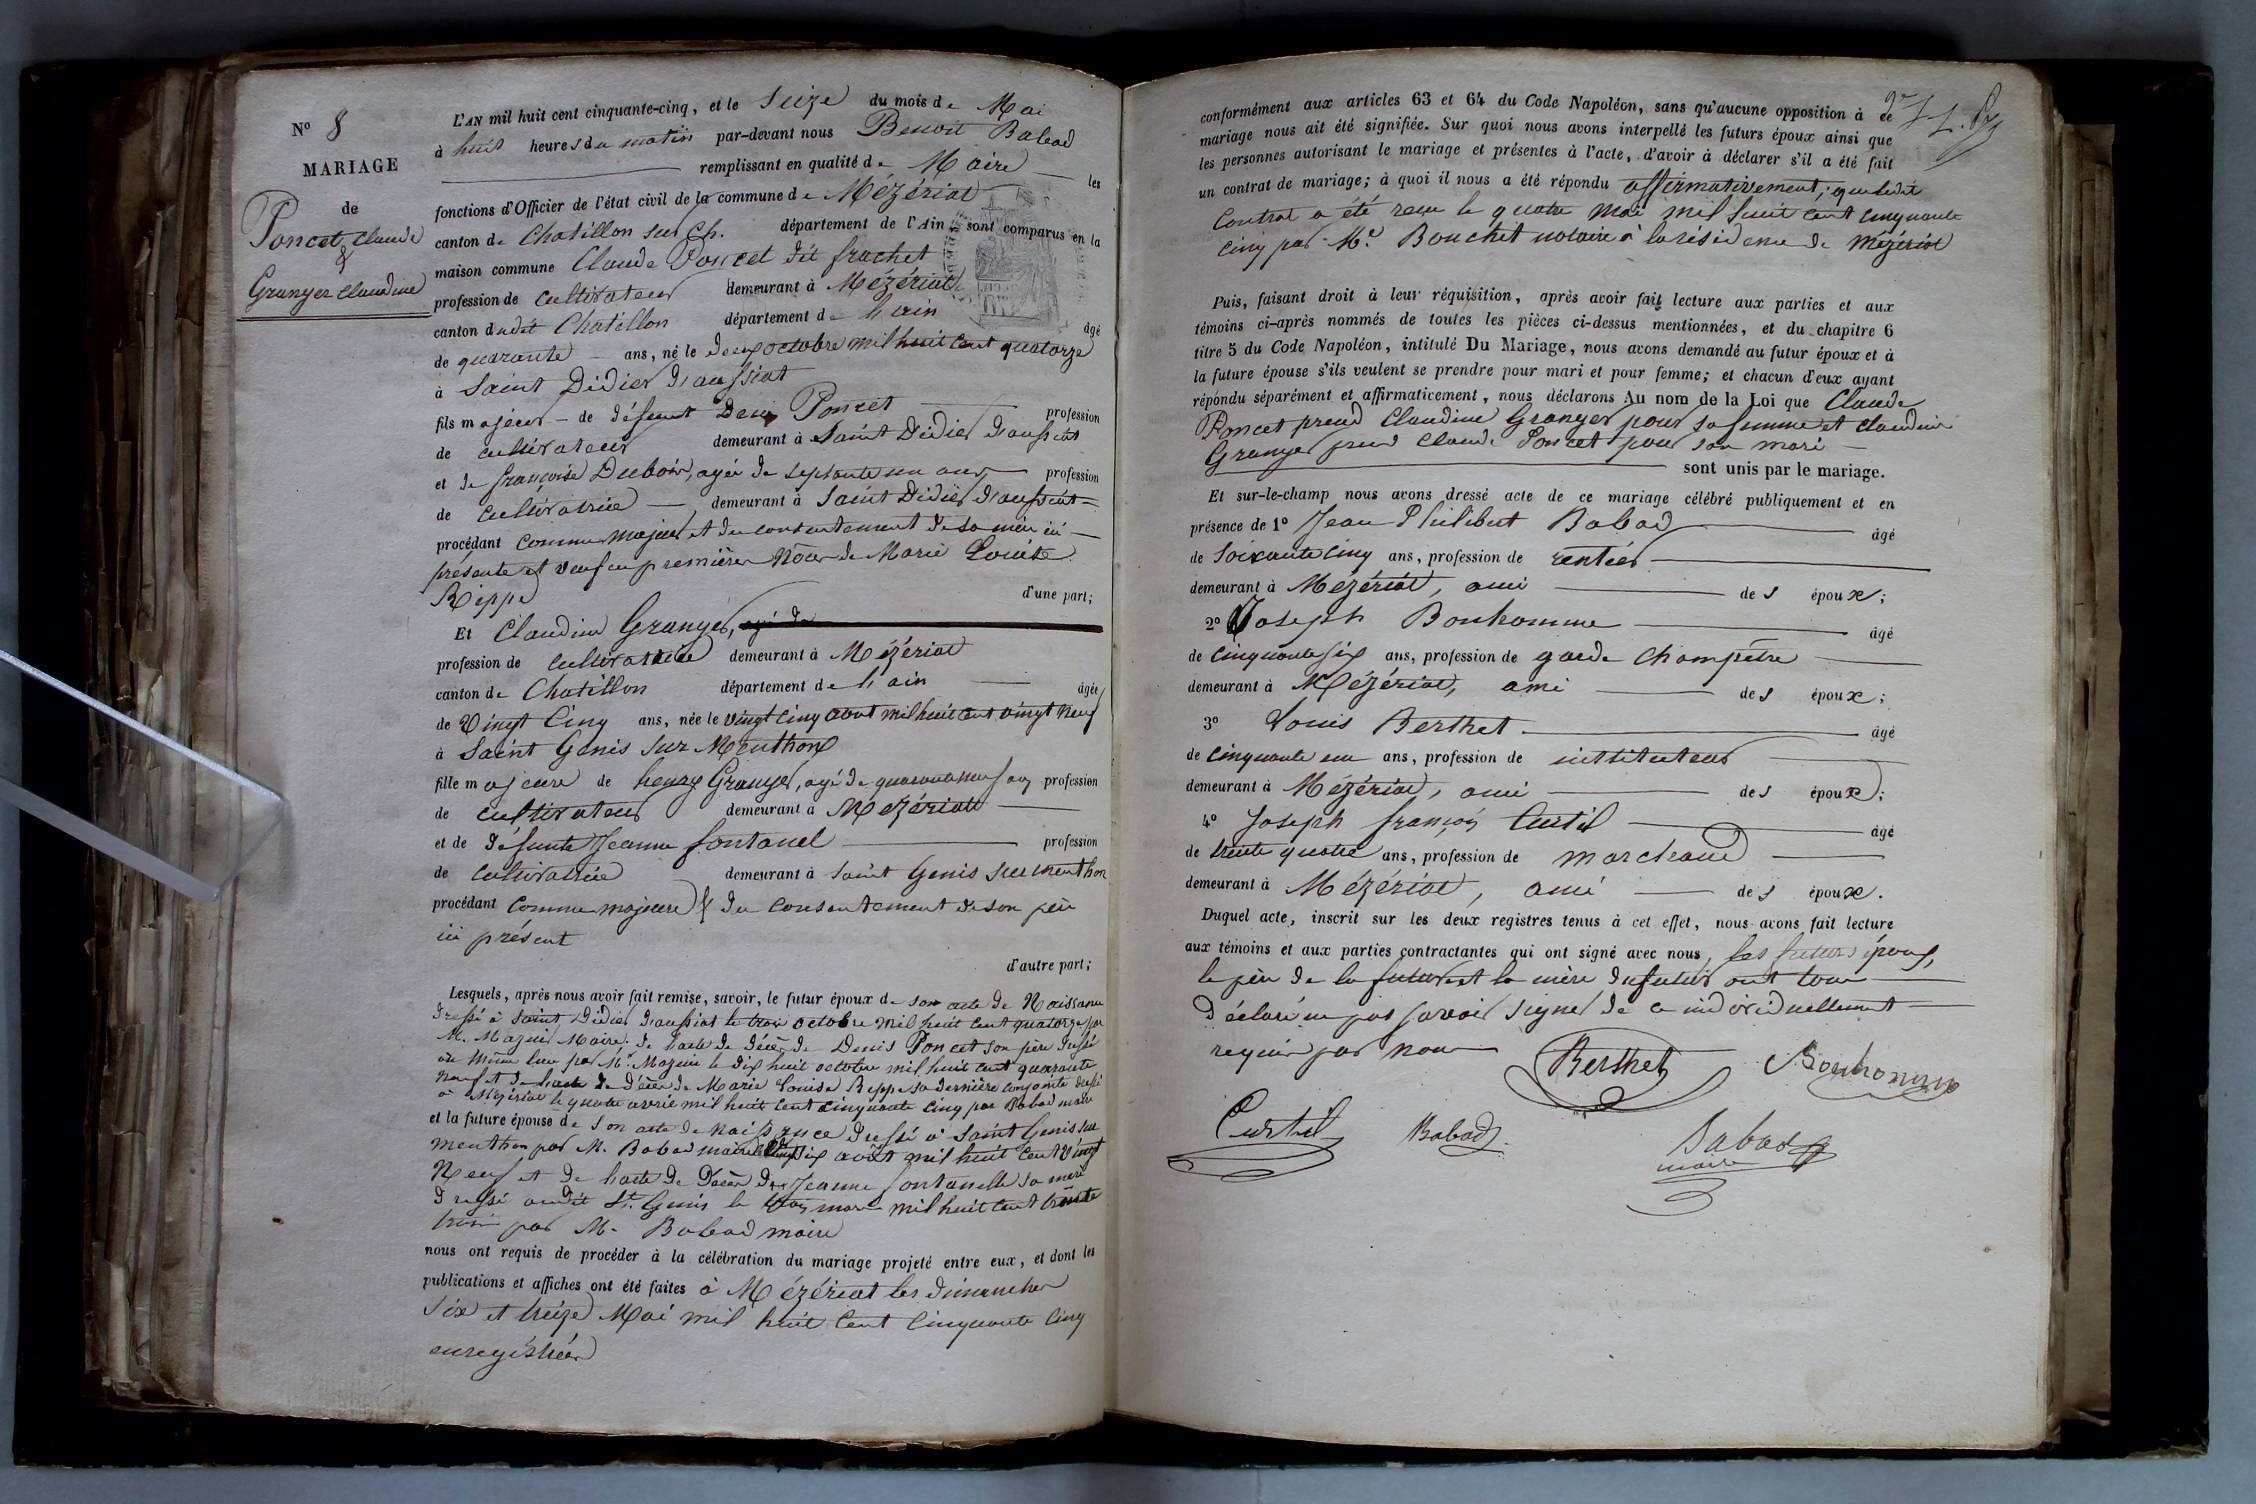 N° 8
MARIAGE
de
Poncet Claude
&
Granger Claudine
L'AN mil huit cent cinquante-cinq, et le Seize du mois de Mai
à huit heures du matin par-devant nous Benoit Babad
remplissant en qualité de Maire les
fonctions d'Officier de l'état civil de la commune de Mézériat
canton de Chatillon sur Ch. département de l'Ain sont comparus en la
maison commune Claude Poncet dit frachet
profession de cultivateur demeurant à Mézériat
canton dudit Chatillon département de l'ain âgé
de quarante ans, né le deux octobre mil huit cent quatorze
à Saint Didier d'aussiat
fils majeur de défunt Denis Poncet profession
de cultivateur demeurant à Saint Didier d'aussiat
et de françoise Dubois, agée de septante un ans profession
de cultivatrice demeurant à Saint Didier d'aussiat
procédant comme majeur et du consentement de sa mère ici
présente et veuf en premières noces de Marie Louise
Rippe d'une part;
Et Claudine Granger, agé de
profession de cultivatrice demeurant à Mézériat
canton de Chatillon département de l'ain âgée
de Vingt Cinq ans, née le vingt cinq aout mil huit cent vingt neuf
à Saint Genis sur Menthon
fille majeure de henry Granger, agé de quarante neuf ans profession
de cultivateur demeurant à Mézériat
et de défunte Jeanne fontanel profession
de cultivatrice demeurant à saint Genis sur menthon
procédant comme majeure & du consentement de son père
ici présent
d'autre part;
Lesquels, après nous avoir fait remise, savoir, le futur époux de son acte de Naissance
dressé à Saint Didier d'aussiat le trois octobre mil huit cent quatorze par
M. Mazuir Maire; de l'acte de décès de Denis Poncet son père dressé
au même lieu par Mr. Mazuir le dix huit octobre mil huit cent quarante
neuf et de l'acte de décès de Marie Louise Rippe sa dernière conjointe dressé
à Mézériat le quatre avril mil huit cent cinquante cinq par Babad maire
et la future épouse de son acte de naissance dressé à Saint Genis sur
menthon par M. Babad maire le vingt six août mil huit cent vingt
Neuf et de l'acte de Décès de Jeanne fontanelle sa mère
dressé audit St. Genis le mars mil huit cent trente
trois par M. Babad maire
nous ont requis de procéder à la célébration du mariage projeté entre eux, et dont les
publications et affiches ont été faites à Mézériat les dimanches
Six et treize Mai mil huit cent cinquante cinq
enregistrées
conformément aux articles 63 et 64 du Code Napoléon, sans qu'aucune opposition à ce
mariage nous ait été signifiée. Sur quoi nous avons interpellé les futurs époux ainsi que
les personnes autorisant le mariage et présentes à l'acte, d'avoir à déclarer s'il a été fait
un contrat de mariage; à quoi il nous a été répondu affirmativement; que ledit
Contrat a été reçu le quatre mai mil huit cent cinquante
cinq par Me. Bouchet notaire à la résidence de Mézériat
Puis, faisant droit à leur réquisition, après avoir fait lecture aux parties et aux
témoins ci-après nommés de toutes les pièces ci-dessus mentionnées, et du chapitre 6
titre 5 du Code Napoléon, intitulé Du Mariage, nous avons demandé au futur époux et à
la future épouse s'ils veulent se prendre pour mari et pour femme; et chacun d'eux ayant
répondu séparément et affirmativement, nous déclarons Au nom de la Loi que Claude
Poncet prend Claudine Granger pour sa femme et Claudine
Granger prend Claude Poncet pour son mari
sont unis par le mariage.
Et sur-le-champ nous avons dressé acte de ce mariage célébré publiquement et en
présence de 1° Jean Philibert Babad âgé
de soixante cinq ans, profession de rentier
demeurant à Mézériat, ami des époux;
2° Joseph Bonhomme âgé
de cinquante six ans, profession de garde champêtre
demeurant à Mézériat, ami des époux;
3° Louis Berthet âgé
de cinquante un ans, profession de instituteur
demeurant à Mézériat, ami des époux;
4° Joseph françois Curtil âgé
de trente quatre ans, profession de marchand
demeurant à Mézériat, ami des époux.
Duquel acte, inscrit sur les deux registres tenus à cet effet, nous avons fait lecture
aux témoins et aux parties contractantes qui ont signé avec nous, les futurs époux,
le père de la future et la mère du futur ont tous
déclaré ne pas savoir signer de ce individuellement
requis par nous
Berthet Bonhomme
Curtil Babad Babad
maire